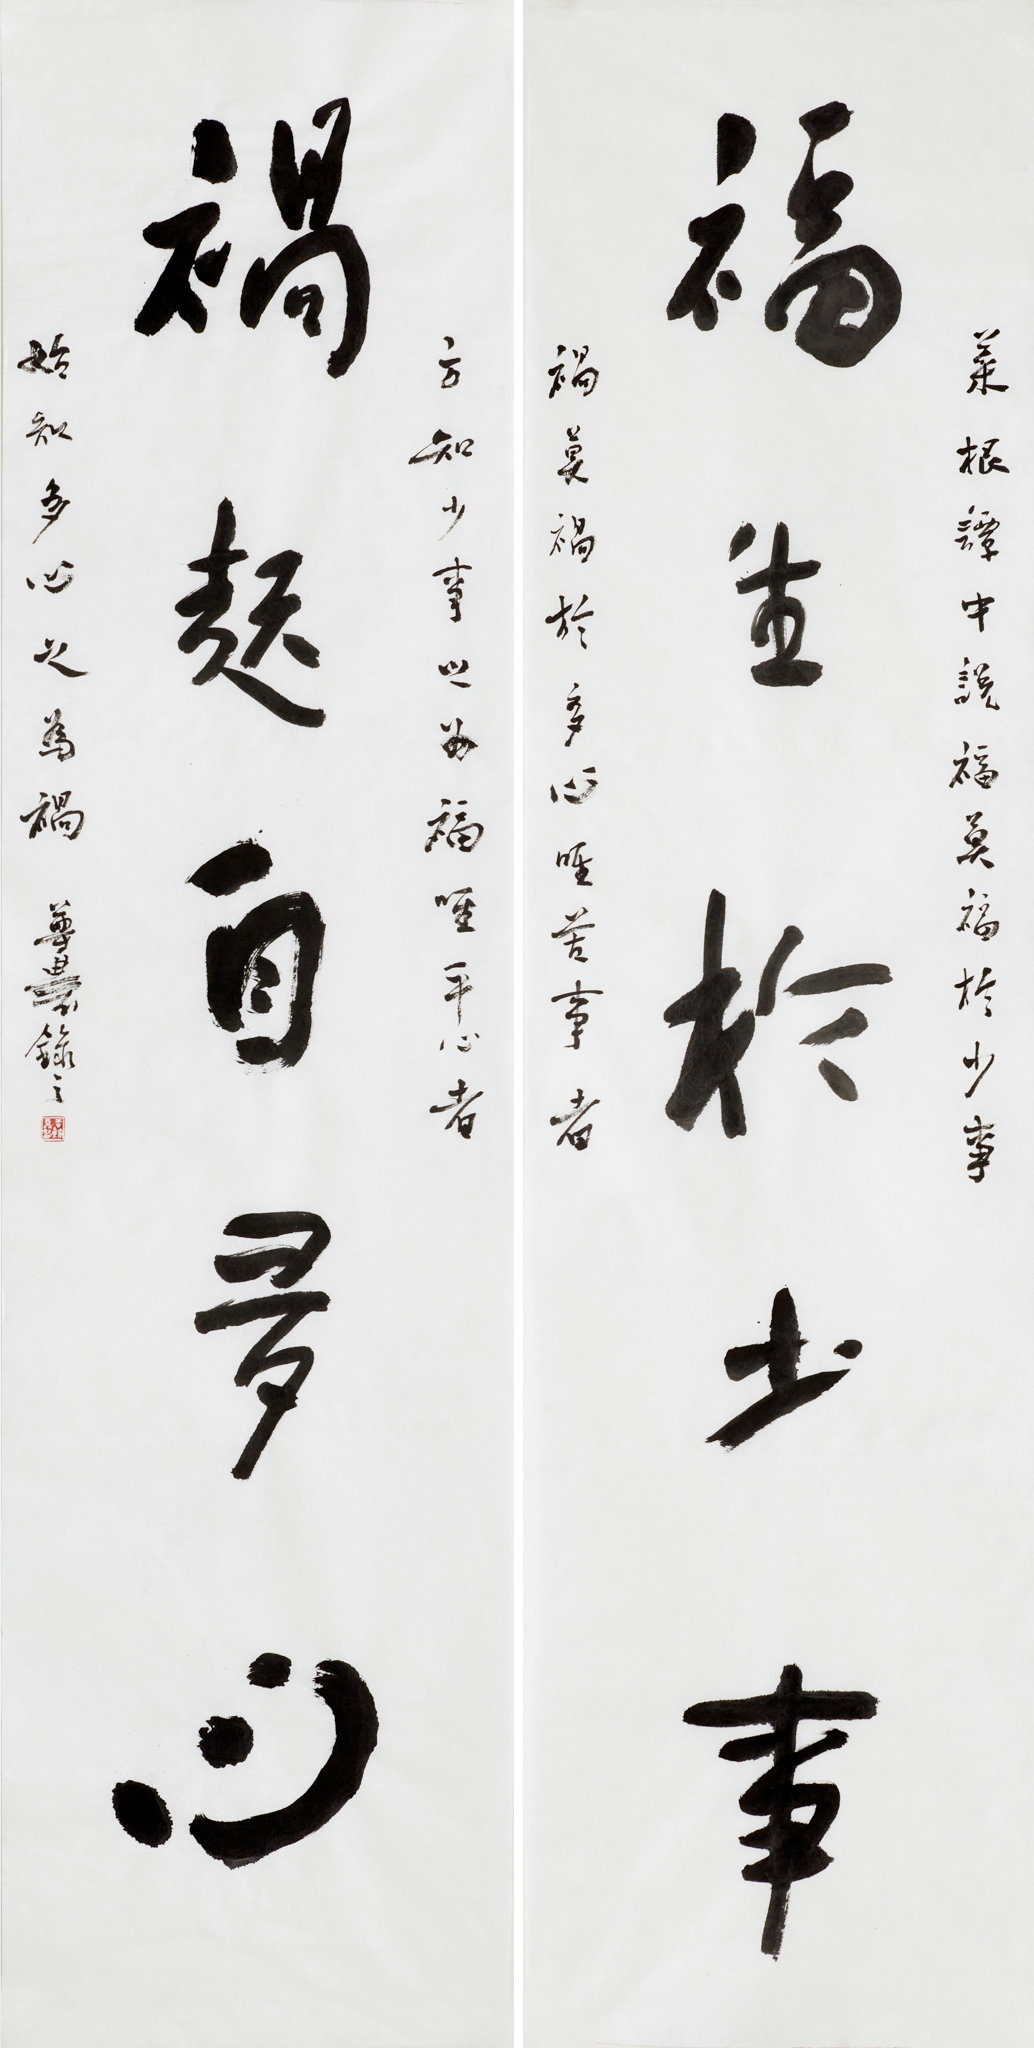 菜根譚中說福莫福於少事
福生於少事
禍莫禍於多心唯苦事者
方知少事之為福唯平心者
禍起自多心
始知多心之為禍 尊農錄之